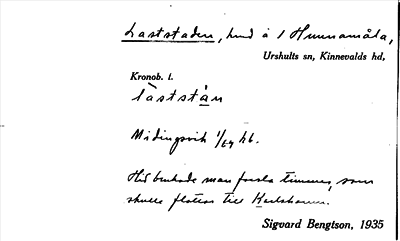 Laststaden, hmd å 1 Hunnamåla,
Urshults sn, Kinnevalds hd,
Kronob. l.
làststån
Midingsvik 1/64 hb.
Här brukade man forsla timmer, som
skulle flottas till Karlshamn.
Sigvard Bengtson, 1935